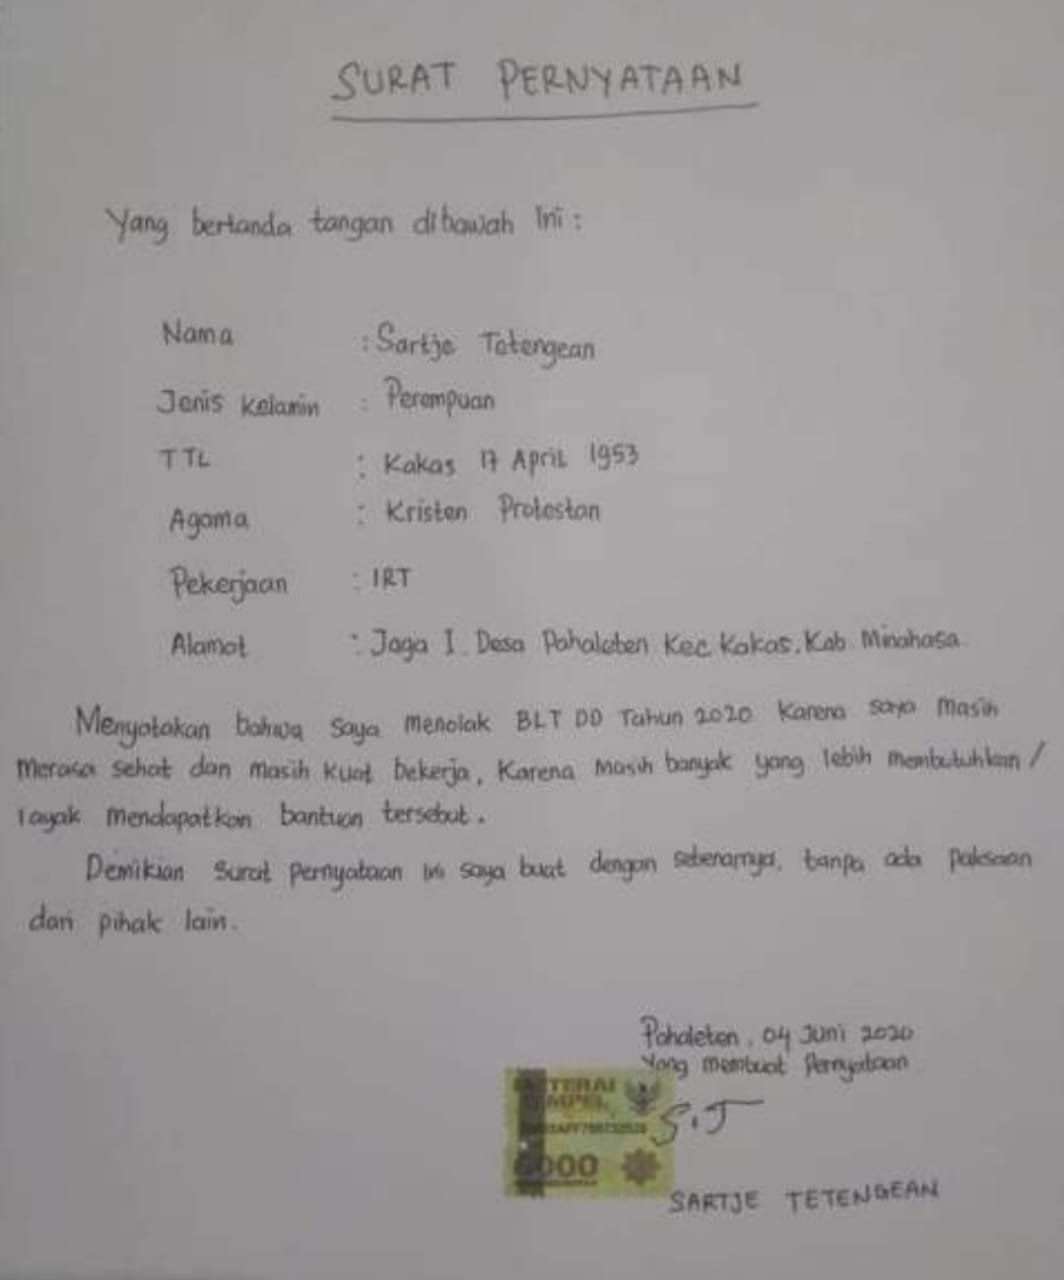 SURAT PERNYATAAN
Yang bertanda tangan dibawah Ini :
Nama : Sartje Tetengean
Jenis Kelamin : Perempuan
TTL : Kakas 17 April 1953
Agama : Kristen Protestan
Pekerjaan : IRT
Alamat : Jaga I Desa Pahaleten Kec Kakas. Kab Minahasa
Menyatakan bahwa saya menolak BLT DD Tahun 2020 Karena saya masih
merasa sehat dan masih kuat bekerja, Karena masih banyak yang lebih membutuhkan /
layak mendapatkan bantuan tersebut.
Demikian surat pernyataan ini saya buat dengan sebenarnya, tanpa ada paksaan
dari pihak lain.
Pahaleten, 04 Juni 2020
Yang membuat Pernyataan
TERAI
MPEL
000
S.T
SARTJE TETENGEAN